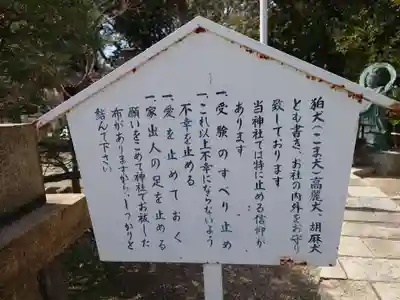 狛犬(こま犬)高麗犬、胡麻犬
とも書き、お社の内外をお守り
致しております
当神社では特に止める信仰が
あります
一、受験のすべり止め
一、これ以上不幸にならないよう
不幸を止める
一、愛を止めておく
一、家出人の足を止める
願いをこめて神社でお祓した
布がありますから、しっかりと
結んで下さい